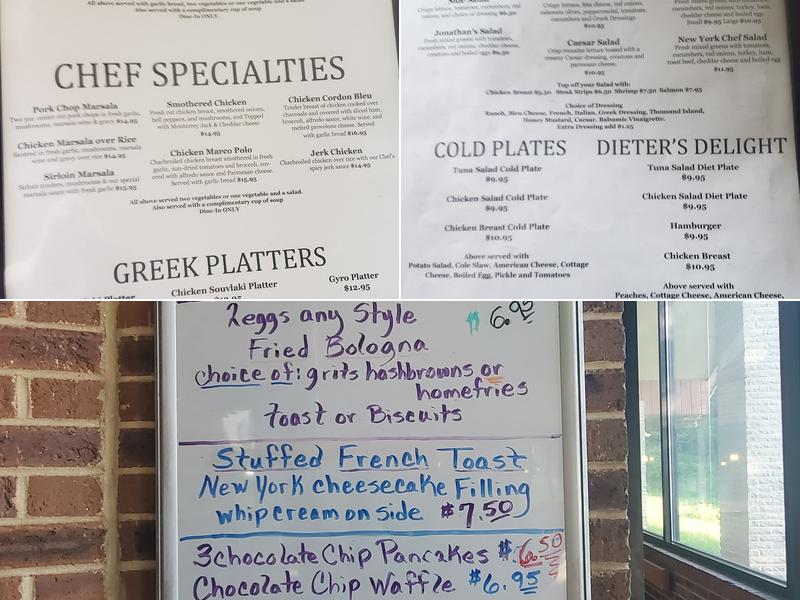 All above served with garlic bread, two vegetables or one vegetable and a salad
Also served with a complimentary cup of soup
Dine-In ONLY
CHEF SPECIALTIES
Pork Chop Marsala
Two 5oz. center cut pork chops in fresh garlic,
mushrooms, marsala wine & gravy $14.95
Chicken Marsala over Rice
Sauteed in fresh garlic, mushrooms, marsala
wine and gravy over rice $14.95
Sirloin Marsala
Sirloin tenders, mushrooms & our special
marsala sauce with fresh garlic $15.95
Smothered Chicken
Fresh cut chicken breast, smothered onions,
bell peppers, and mushrooms, and Topped
with Monterey Jack & Cheddar cheese
$14.95
Chicken Marco Polo
Charbroiled chicken breast smothered in fresh
garlic, sun-dried tomatoes and broccoli, cov-
ered with alfredo sauce and Parmesan cheese.
Served with garlic bread $15.95
Chicken Cordon Bleu
Tender breast of chicken cooked over
charcoals and covered with sliced ham,
broccoli, alfredo sauce, white wine, and
melted provolone cheese. Served
with garlic bread $16.95
Jerk Chicken
Charbroiled chicken over rice with our Chef's
spicy jerk sauce $14.95
All above served two vegetables or one vegetable and a salad.
Also served with a complimentary cup of soup
Dine-In ONLY
GREEK PLATTERS
Platter
Chicken Souvlaki Platter
Gyro Platter
$12.95
Side Salad
Crisp lettuce, tomatoes, cucumbers, red
onions, and choice of dressing $6.50
Jonathan's Salad
Fresh mixed greens with tomatoes,
cucumbers, red onions, cheddar cheese,
croutons and boiled egg $6.50
Crisp lettuce, feta cheese, red onions,
calamata olives, pepperoncini, tomatoes,
cucumbers and Greek Dressings
$10.95
Caesar Salad
Crisp romaine lettuce tossed with a
creamy Caesar dressing, croutons and
parmesan cheese.
$10.95
Fresh mixed greens with tomatoes,
cucumbers, red onions, turkey, ham,
cheddar cheese and boiled egg
Small $9.95 Large $10.95
New York Chef Salad
Fresh mixed greens with tomatoes,
cucumbers, red onions, turkey, ham,
roast beef, cheddar cheese and boiled egg
$11.95
Top off your Salad with:
Chicken Breast $5.50 Steak Strips $6.50 Shrimp $7.50 Salmon $7.95
Choice of Dressing
Ranch, Bleu Cheese, French, Italian, Greek Dressing, Thousand Island,
Honey Mustard, Caesar, Balsamic Vinaigrette.
Extra Dressing add $1.25
COLD PLATES
Tuna Salad Cold Plate
$9.95
Chicken Salad Cold Plate
$9.95
Chicken Breast Cold Plate
$10.95
Above served with
Potato Salad, Cole Slaw, American Cheese, Cottage
Cheese, Boiled Egg, Pickle and Tomatoes
DIETER'S DELIGHT
Tuna Salad Diet Plate
$9.95
Chicken Salad Diet Plate
$9.95
Hamburger
$9.95
Chicken Breast
$10.95
Above served with
Peaches, Cottage Cheese, American Cheese,
2eggs any Style $6.95
Fried Bologna
choice of: grits hashbrowns or
homefries
Toast or Biscuits
Stuffed French Toast
New York cheesecake Filling
whipcream on side $7.50
3 chocolate Chip Pancakes $6.50
Chocolate Chip Waffle $6.95